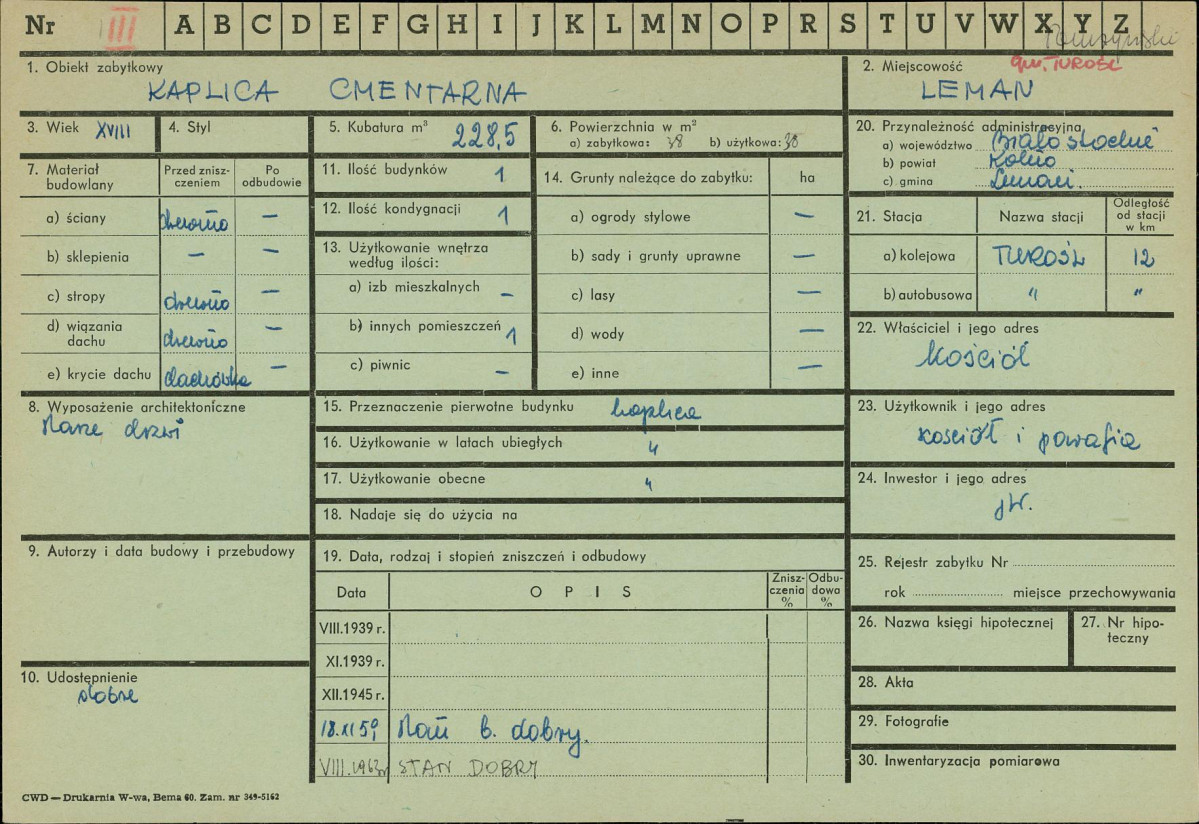 Nr III A B C D E F G H I J K L M N O P R S T U V W X Y Z
1. Obiekt zabytkowy
KAPLICA CMENTARNA
2. Miejscowość gm. TUROŚL
LEMAN
3. Wiek XVIII
4. Styl
5. Kubatura m³ 228,5
6. Powierzchnia w m²
a) zabytkowa: 38 b) użytkowa: 38
7. Materiał budowlany
Przed zniszczeniem
Po odbudowie
a) ściany drewno —
b) sklepienia — —
c) stropy drewno —
d) wiązania dachu drewno —
e) krycie dachu dachówka —
8. Wyposażenie architektoniczne
stare drzwi
9. Autorzy i data budowy i przebudowy
10. Udostępnienie
dobre
11. Ilość budynków 1
12. Ilość kondygnacji 1
13. Użytkowanie wnętrza
według ilości:
a) izb mieszkalnych —
b) innych pomieszczeń 1
c) piwnic —
14. Grunty należące do zabytku: ha
a) ogrody stylowe —
b) sady i grunty uprawne —
c) lasy —
d) wody —
e) inne —
15. Przeznaczenie pierwotne budynku kaplica
16. Użytkowanie w latach ubiegłych "
17. Użytkowanie obecne "
18. Nadaje się do użycia na
19. Data, rodzaj i stopień zniszczeń i odbudowy
Data
O P I S
Zniszczenia %
Odbudowa %
VIII.1939 r.
XI.1939 r.
XII.1945 r.
18.XI 59 stan b. dobry.
VIII.1963r STAN DOBRY
20. Przynależność administracyjna
a) województwo Białostockie
b) powiat Kolno
c) gmina Leman.
21. Stacja
Nazwa stacji
Odległość
od stacji
w km
a) kolejowa TUROŚL 12
b) autobusowa " "
22. Właściciel i jego adres
Kościół
23. Użytkownik i jego adres
kościół i parafia
24. Inwestor i jego adres
jw.
25. Rejestr zabytku Nr
rok miejsce przechowywania
26. Nazwa księgi hipotecznej
27. Nr hipoteczny
28. Akta
29. Fotografie
30. Inwentaryzacja pomiarowa
CWD — Drukarnia W-wa, Bema 60. Zam. nr 349-5162